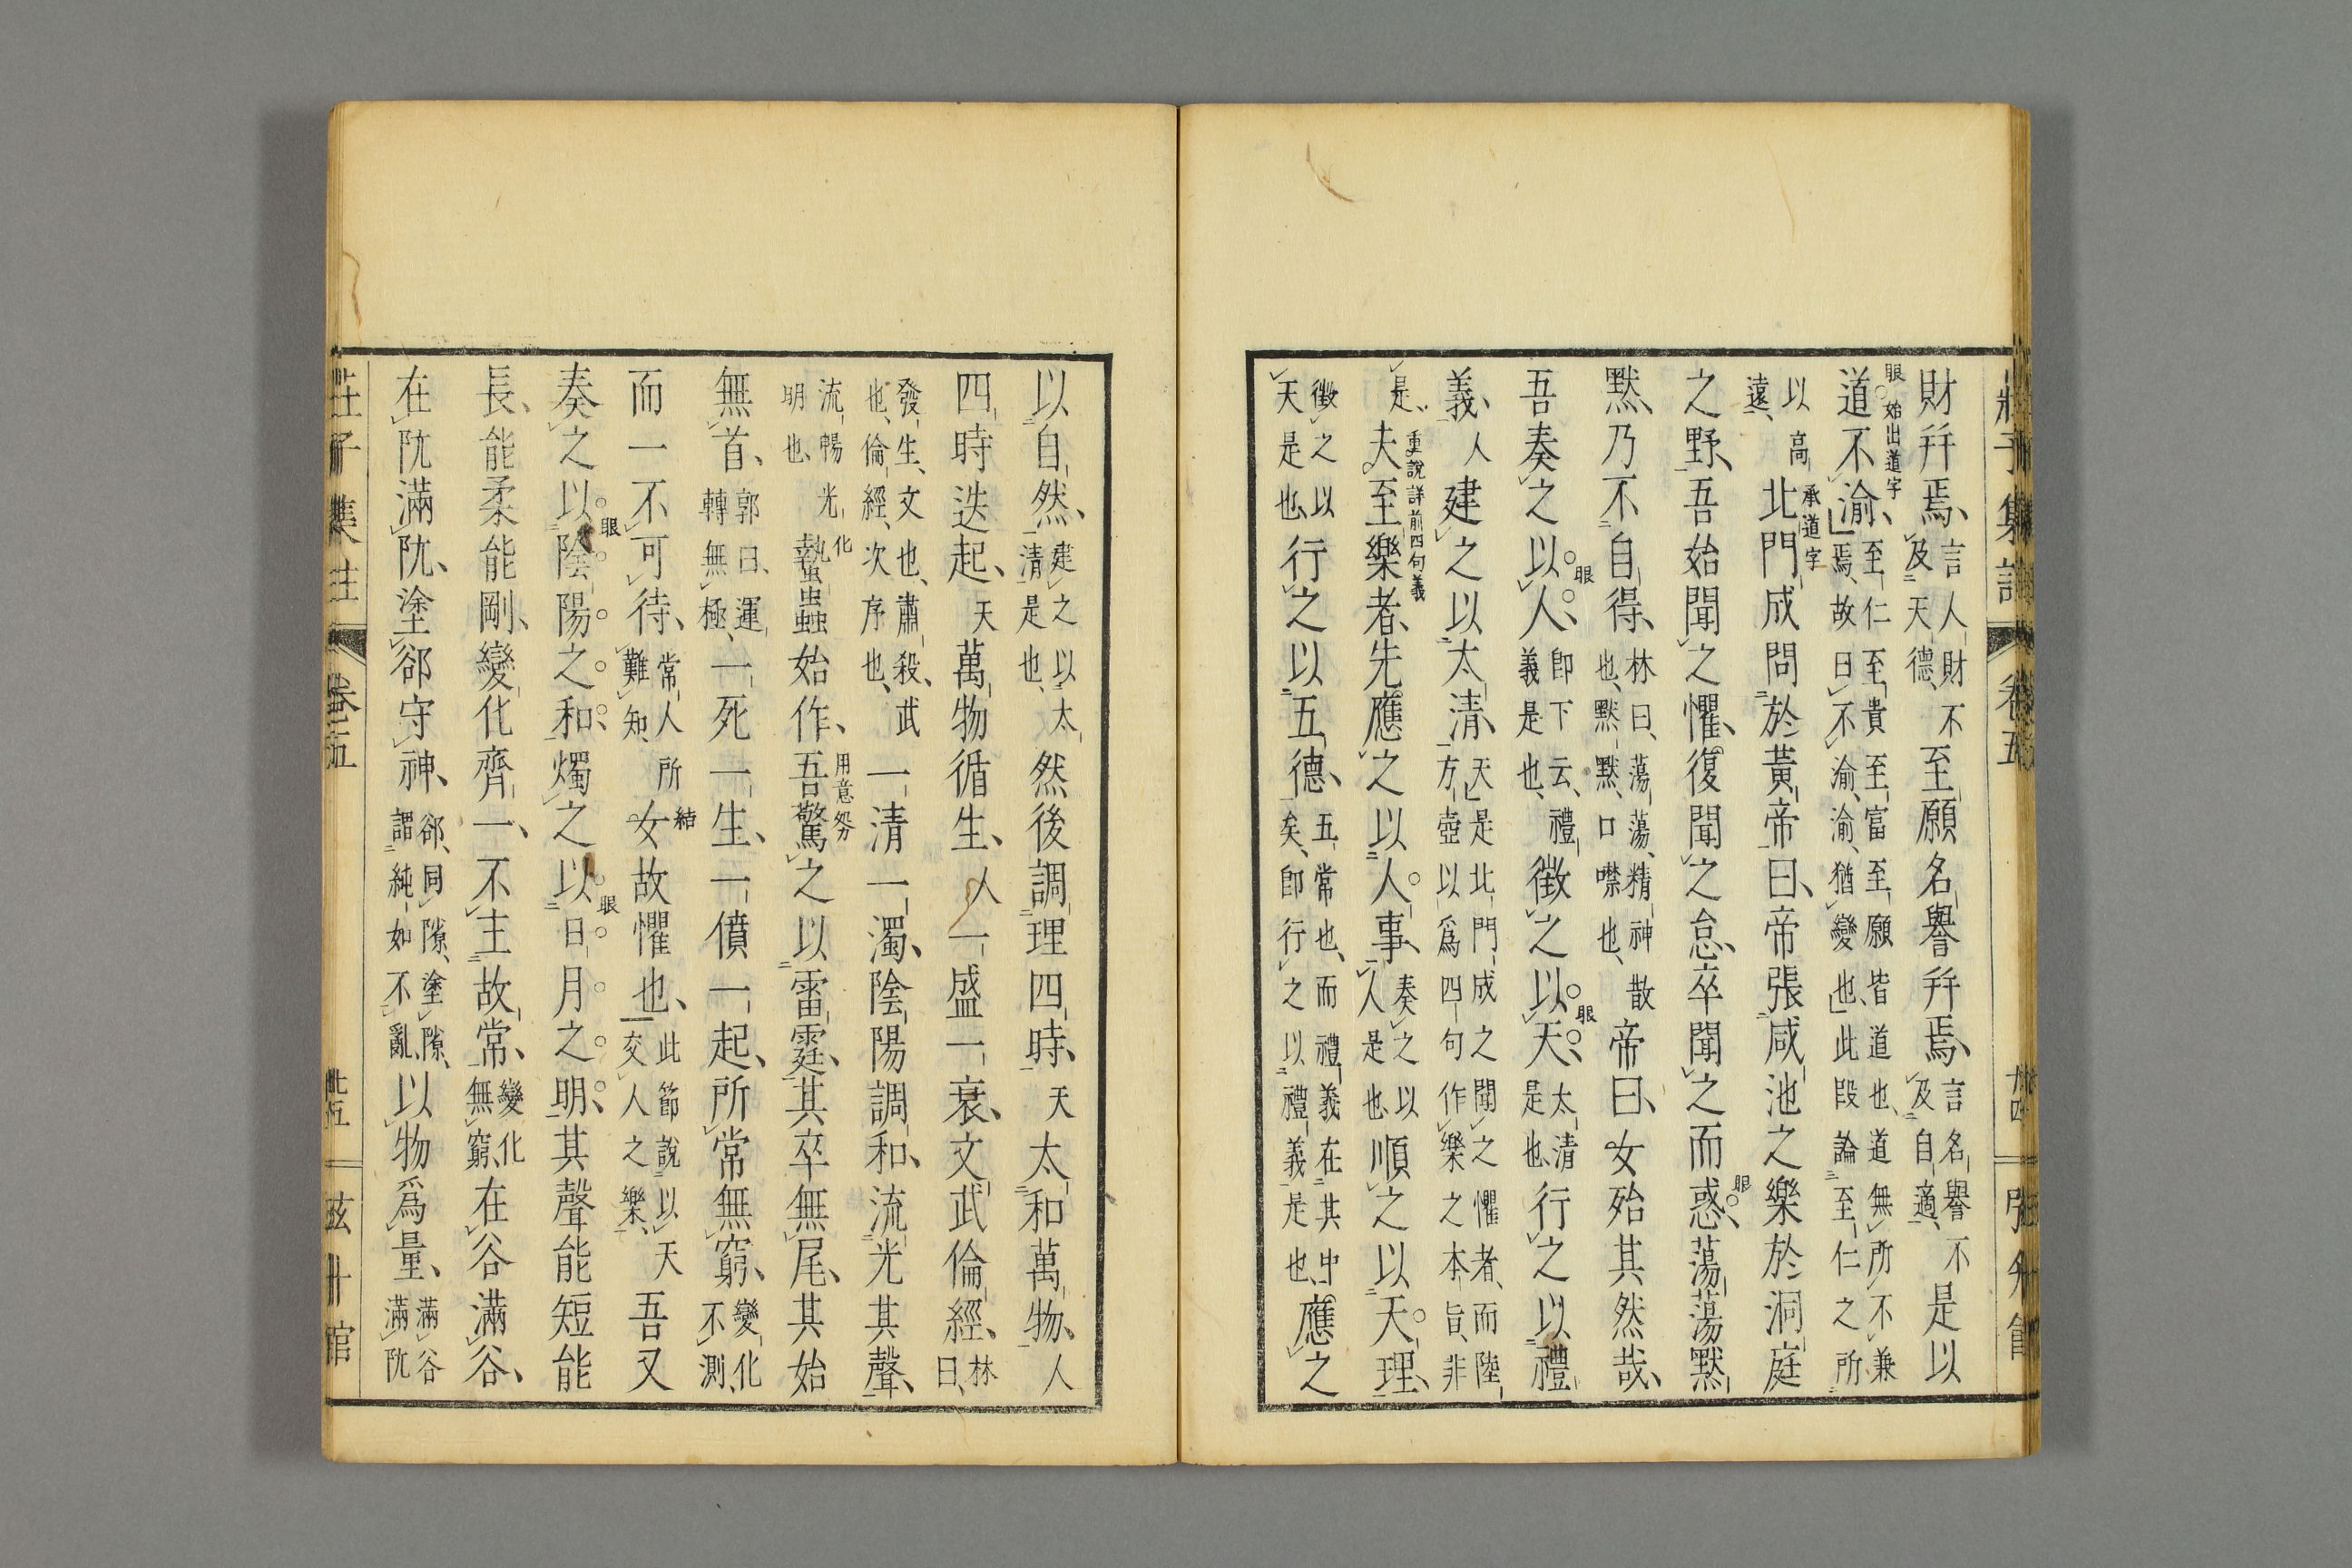 財幷焉、言人財不及天德、至願名譽幷焉、言名譽不及自適、是以
道不渝、至仁至貴至富至願皆道也、道無所不兼焉、故曰不渝、渝、猶變也、此段論至仁之所
眼
始出道字
以高遠、北門成問於黃帝曰、帝張咸池之樂於洞庭
承道字
之野、吾始聞之懼、復聞之怠、卒聞之而惑、蕩蕩默
眼
默、乃不自得、林曰、蕩蕩、精神散也、默默、口噤也、帝曰、女殆其然哉、
吾奏之以人、卽下云、禮義是也、徵之以天、太清是也、行之以禮
眼
眼
義、人建之以太清、天是北門成之聞之懼者、而陸方壺以爲四句作樂之本旨、非
是、夫至樂者、先應之以人事、奏之以人是也、順之以天理、
重說詳前四句義
徵之以天是也、行之以五德、五常也、而禮義在其中矣、卽行之以禮義是也、應之
以自然、建之以太清是也、然後調理四時、天太和萬物、人
四時迭起、天萬物循生、人一盛一衰、文武倫經、林曰、
發生、文也、肅殺、武也、倫經、次序也、一清一濁、陰陽調和、流光其聲、
流暢光明也、蟄蟲始作、吾驚之以雷霆、其卒無尾、其始
化
用意勞
無首、郭曰、運轉無極、一死一生、一僨一起、所常無窮、變化不測、
而一不可待、常人所難知、女故懼也、此節說以天交人之樂、吾又
結
奏之以陰陽之和、燭之以日月之明、其聲能短能
眼
眼
長、能柔能剛、變化齊一、不主故常、變化無窮、在谷滿谷、
在阬滿阬、塗郤守神、郤、同隙、塗隙、謂純一不亂、以物爲量、滿谷滿阬
莊子集註
卷五